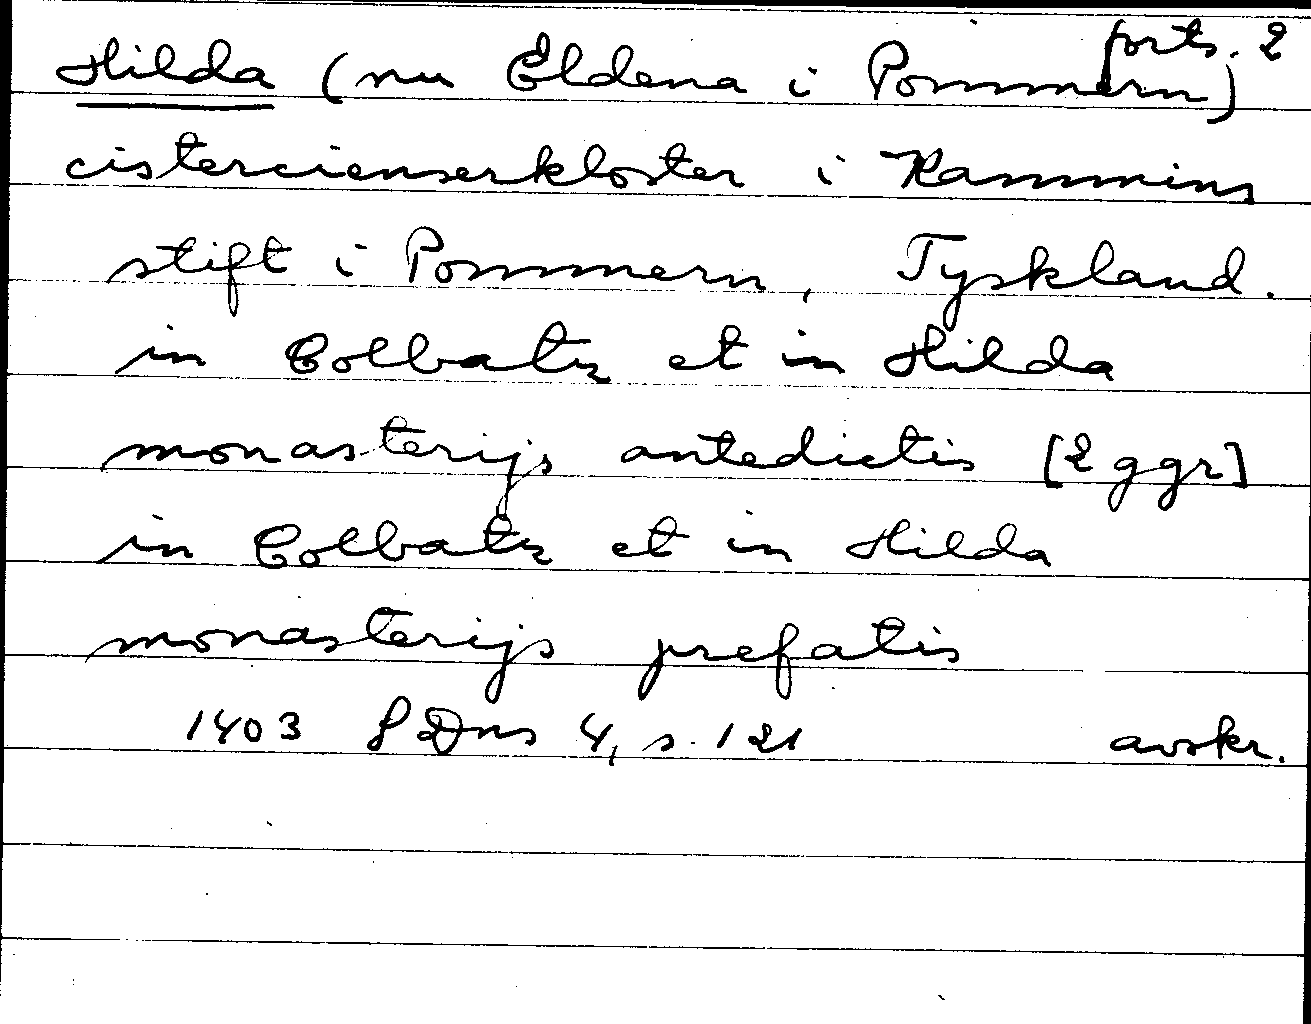 forts. 2
Hilda (nu Eldena i Pommern)
cistercienserkloster i Kammins
stift i Pommern, Tyskland.
in Colbatz et in Hilda
monasterijs antedictis [2 ggr]
in Colbatz et in Hilda
monasterijs prefatis
1403 SDns 4, s. 121 avskr.